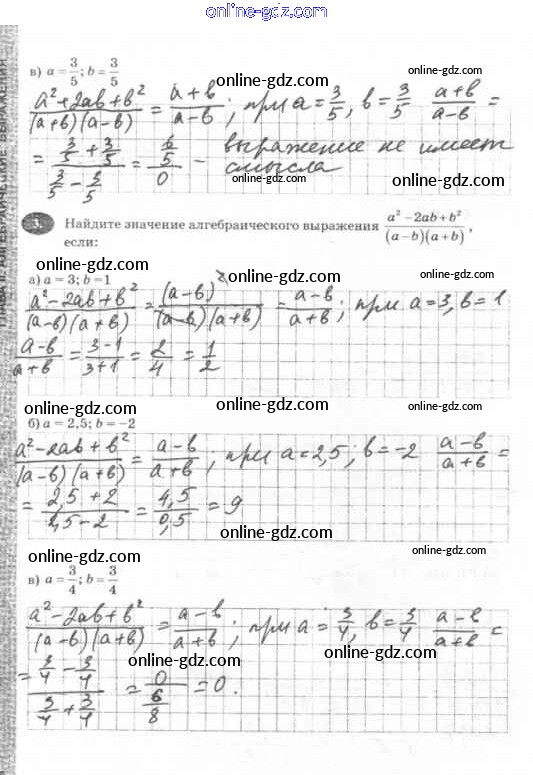 online-gdz.com
в) a = 3/5; b = 3/5
online-gdz.com online-gdz.com
(a²+2ab+b²)/((a+b)(a-b)) = (a+b)/(a-b); при a = 3/5, b = 3/5 (a+b)/(a-b) =
online-gdz.com
= (3/5 + 3/5)/(3/5 - 3/5) = (6/5)/0 - выражение не имеет
смысла
online-gdz.com online-gdz.com
3. Найдите значение алгебраического выражения (a² - 2ab + b²)/((a - b)(a + b)),
если:
online-gdz.com online-gdz.com
а) a = 3; b = 1
online-gdz.com
(a²-2ab+b²)/((a-b)(a+b)) = (a-b)²/((a-b)(a+b)) = (a-b)/(a+b); при a=3, b=1
(a-b)/(a+b) = (3-1)/(3+1) = 2/4 = 1/2
online-gdz.com online-gdz.com online-gdz.com
б) a = 2,5; b = -2
(a²-2ab+b²)/((a-b)(a+b)) = (a-b)/(a+b); при a=2,5; b=-2 (a-b)/(a+b) =
= (2,5+2)/(2,5-2) = 4,5/0,5 = 9
online-gdz.com
online-gdz.com online-gdz.com
в) a = 3/4; b = 3/4
online-gdz.com
(a²-2ab+b²)/((a-b)(a+b)) = (a-b)/(a+b); при a = 3/4, b = 3/4 (a-b)/(a+b) =
online-gdz.com online-gdz.com
= (3/4 - 3/4)/(3/4 + 3/4) = 0/(6/8) = 0.